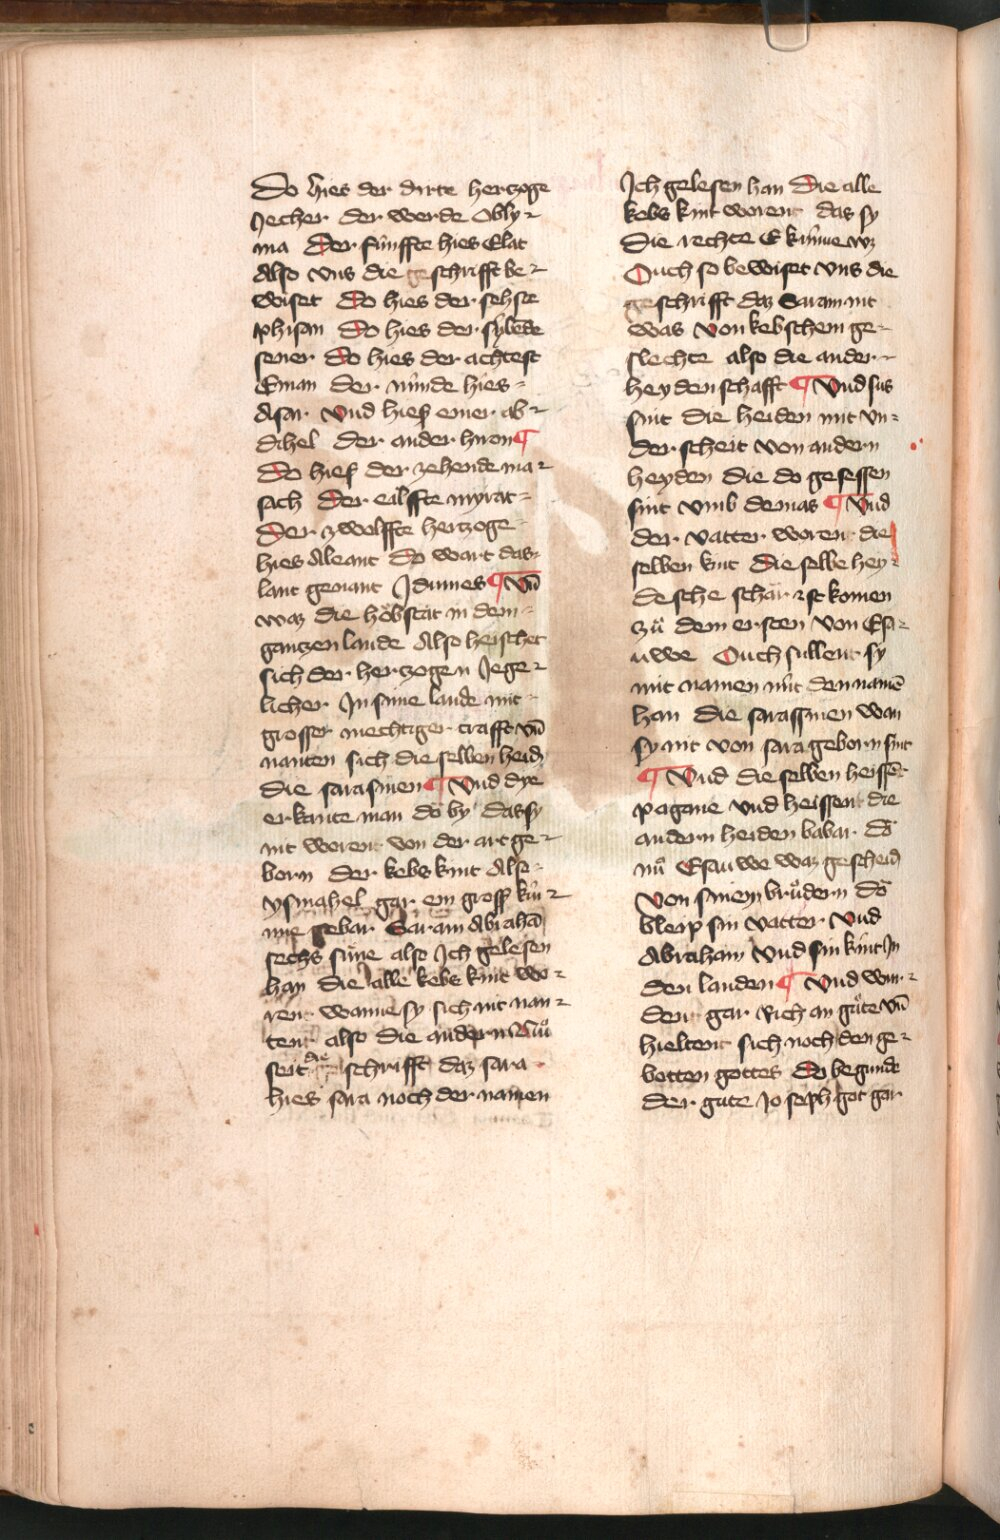 Do hies der dirte hertzoge
Jecher der werde Obly-
ma Der fúnffte hies Elat
Also vns die geschrifft be-
wiset Do hies der sehste
phisan Do hies der sybēde
sener Do hies der achtest
Eman der núnde hies-
Asar Vnd hieß einer ab-
dihel der ander huon¶
Do hieß der zehende ma-
sach Der eilffte myrat-
Der zwelffte hertzoge-
hies Aleant Do wart das-
lant genant Jdumes ¶ Vn̄
waz die höbstat in dem-
gantzen lande Also heischet
sich der hertzogen Jege-
licher Jn sime lande mit-
grosser mechtiger crafft vn̄
nanten sich die selben heid
die sarasinen ¶ Vnd dye
erkante man do by das sy
nit werent von der art ge-
born der kebs kint Alse-
ysmahel gar ein groß kún-
nne gebar Saram Abrahā
sechs súne also Jch gelesen
han die alle kebs kint wo-
rent wanne sy sich nit nan-
tent also die andern Nuͦ
seit die schrifft daz sara
hies sara noch der namen
Jch gelesen han Die alle
kebs kint worent das sy
die rechte E kúnne wz
Ouch so bewiset vns die
geschrifft daz Saram nit
was von kebschem ge-
slechte also die ander-
heydenschafft ¶ Vnd sus
sint die heiden mit vn-
der scheit von andern
heyden die do gesessen
sint vmb demas ¶ Vnd
der vatter woren die
selben kint Die selbe hey-
desche schar ist komen
zuͦ dem ersten von Esa-
uwe Ouch sullent sy
mit namen nút den namē
han die sarassinen wan
sy nit von sara geborn sint
¶ Vnd die selben heissēt
pagane vnd heissent die
andern heiden babar Do
nuͦ Esauwe waz gescheid
von sinem bruͦdern do
bleip sin vatter vnd
Abraham vnd sin kint Jn
den landen ¶ Vnd wur-
dent gar Rich an guͦte vn̄
hieltent sich noch den ge-
botten gottes Do begunde
der gute Joseph got gar